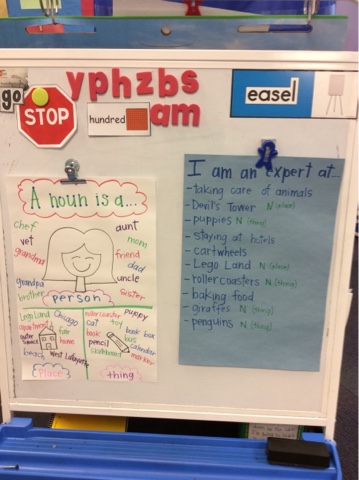 yphzbs
easel
go
STOP
hundred
am
A noun is a...
chef
aunt
vet
mom
grandma
friend
dad
grandpa
uncle
brother
sister
person
Lego Land
Chicago
apartment
fair
home
outer space
beach
West Lafayette
Place
rollercoaster
puppy
cat
toy
book
book box
bus
pencil
calendar
skateboard
marker
thing
I am an expert at...
- taking care of animals
- Devil's Tower N (place)
- puppies N (thing)
- staying at hotels
- cartwheels
- Lego Land N (place)
- rollercoasters N (thing)
- baking food
- giraffes N (thing)
- penguins N (thing)